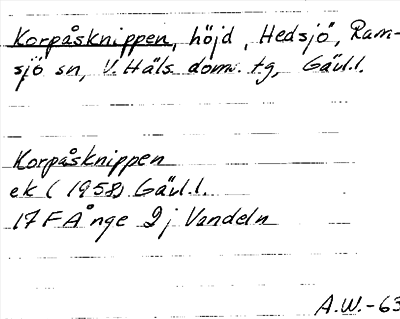 Korpåsknippen, höjd, Hedsjö, Ram-
sjö sn, V. Häls. doms. tg, Gävl.l.
Korpåsknippen
ek (1958) Gävl.l.
17F Ånge 2j Vandeln
A.W.-63